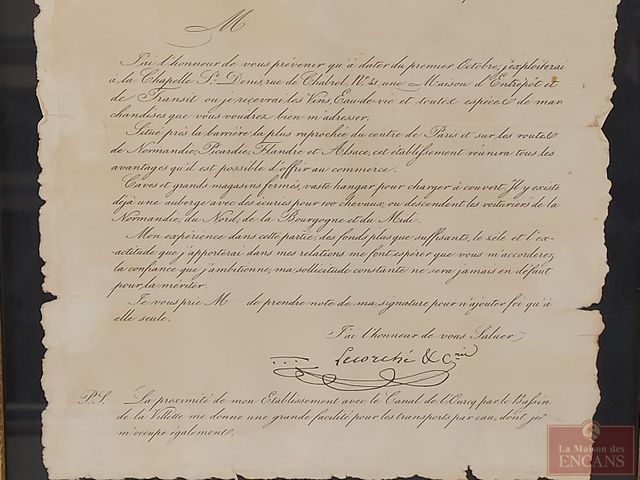 M
J'ai l'honneur de vous prévenir qu'à dater du premier Octobre, j'exploiterai
à la Chapelle St. Denis, rue de Chabrol, No. 41, une Maison d'Entrepôt et
de Transit ou je recevrai les Vins, Eau-de-vie et toutes espèces de mar
chandises que vous voudrez bien m'adresser.
Située près la barrière la plus raprochée du centre de Paris et sur les routes
de Normandie, Picardie, Flandre et Alsace, cet établissement réunira tous les
avantages qu'il est possible d'offrir au commerce.
Caves et grands magasins fermés, vaste hangar pour charger à couvert. Il y existe
déjà une auberge avec des écuries pour 100 chevaux, ou descendent les voituriers de la
Normandie, du Nord, de la Bourgogne et du Midi.
Mon expérience dans cette partie, des fonds plus que suffisants, le zèle et l'ex-
actitude que j'apporterai dans mes relations me font espérer que vous m'accorderez
la confiance que j'ambitionne, ma sollicitude constante ne sera jamais en défaut
pour la mériter.
Je vous prie M de prendre note de ma signature pour n'ajouter foi qu'à
elle seule.
J'ai l'honneur de vous Saluer
Lecorché & Cnie
P.S. La proximité de mon Etablissement avec le Canal de l'Ourcq par le Bassin
de la Villette me donne une grande facilité pour les transports par eau, dont je
m'occupe également.
La Maison des
ENCANS